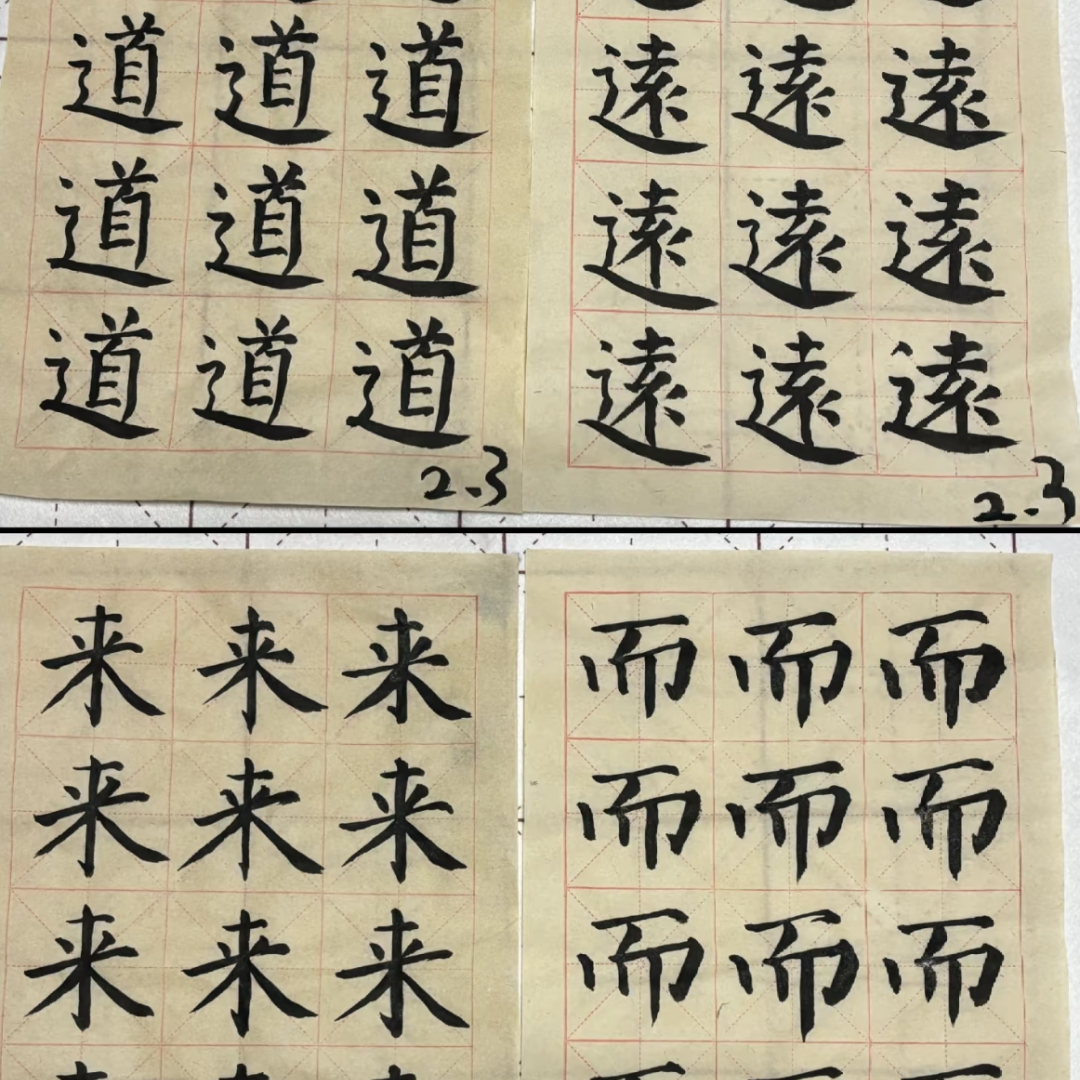 道 道 道
道 道 道
道 道 道
2.3
遠 遠 遠
遠 遠 遠
遠 遠 遠
2.3
来 来 来
来 来 来
来 来 来
而 而 而
而 而 而
而 而 而